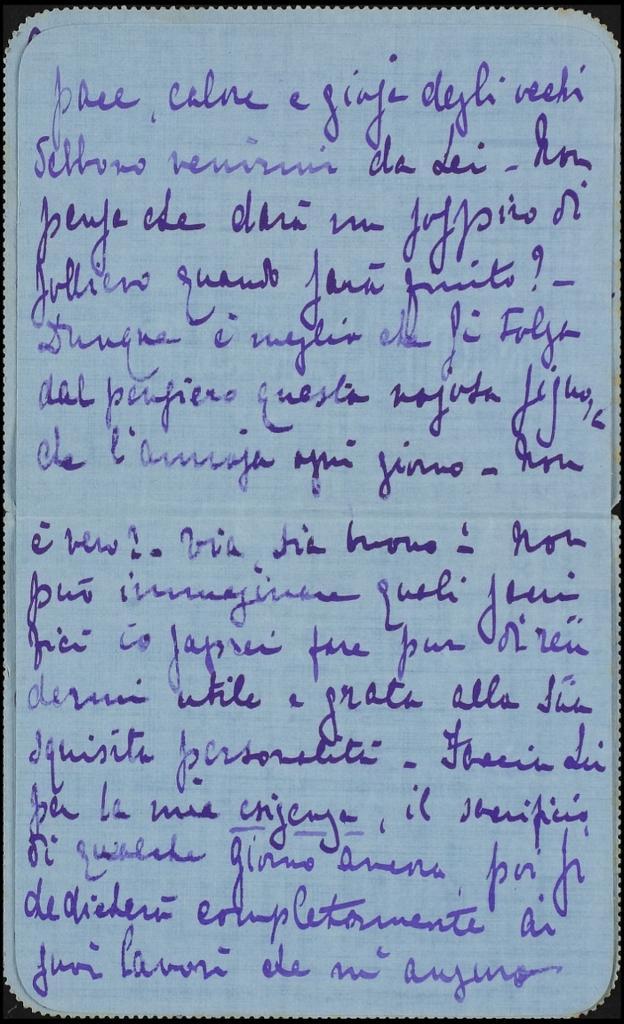 pace, calore e gioja degli occhi
debbono venirmi da Lei - Non
pensa che darà un sospiro di
sollievo quando sarà finito? -
Dunque è meglio che si tolga
dal pensiero questa nojosa signora
che l'annoja ogni giorno - Non
è vero? - Via, sia buono - Non
può immaginare quali sacri
fici io saprei fare pur di ren
dermi utile e grata alla Sua
squisita personalità - Faccia Lei
per la mia esigenza, il sacrificio
di qualche giorno ancora, poi si
dedicherà completamente ai
suoi lavori che m'auguro